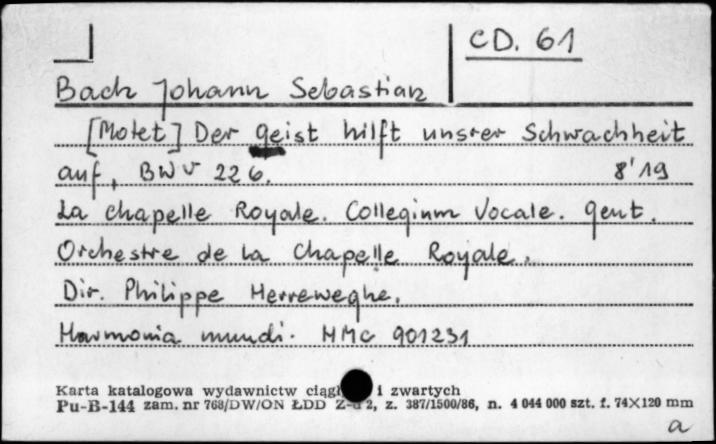 CD. 61
Bach Johann Sebastian
[Motet] Der geist hilft unsrer Schwachheit
auf, BWV 226. 8'19
La chapelle Royale. Collegium Vocale. Gent.
Orchestre de la Chapelle Royale.
Dir. Philippe Herreweghe.
Harmonia mundi. HMC 901231
Karta katalogowa wydawnictw i zwartych
Pu-B-144 zam. nr 768/DW/ON ŁDD 2, z. 387/1500/86, n. 4 044 000 szt. f. 74×120 mm
a